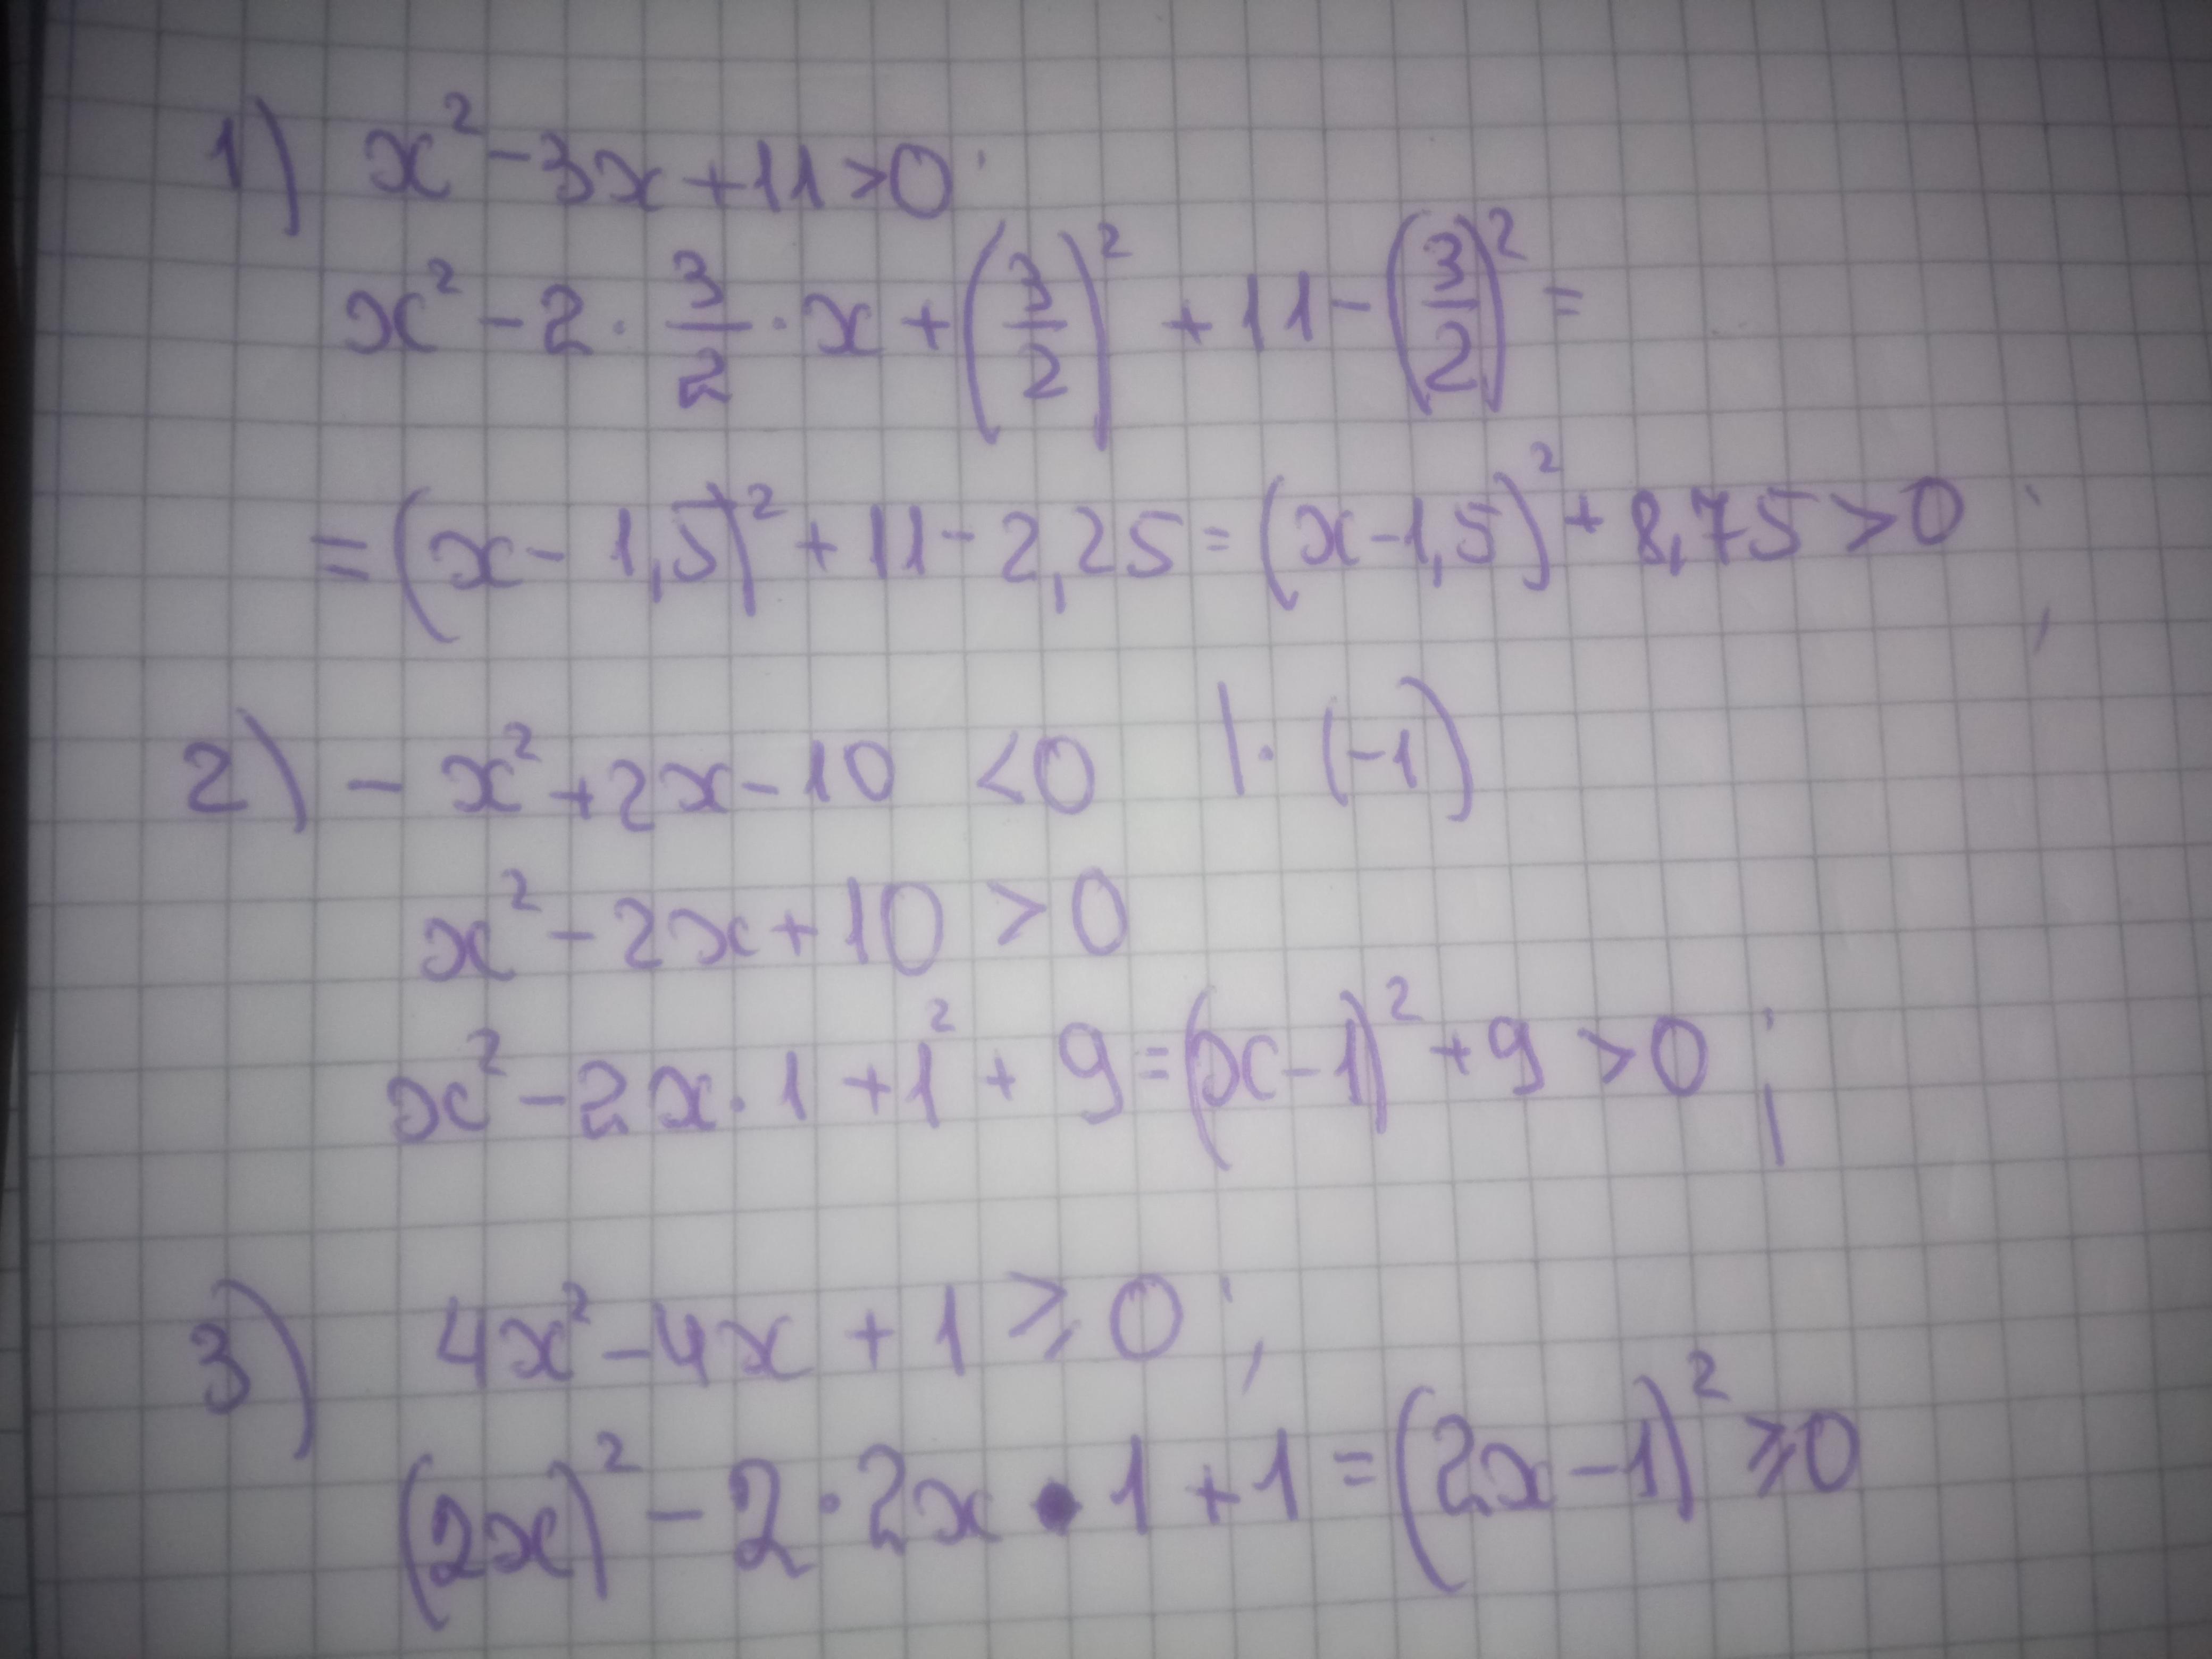 1) x² - 3x + 11 > 0;
x² - 2 · 3/2 · x + (3/2)² + 11 - (3/2)² =
= (x - 1,5)² + 11 - 2,25 = (x - 1,5)² + 8,75 > 0;
2) - x² + 2x - 10 < 0 | · (-1)
x² - 2x + 10 > 0
x² - 2x · 1 + 1² + 9 = (x - 1)² + 9 > 0;
3) 4x² - 4x + 1 ⩾ 0;
(2x)² - 2 · 2x · 1 + 1 = (2x - 1)² ⩾ 0